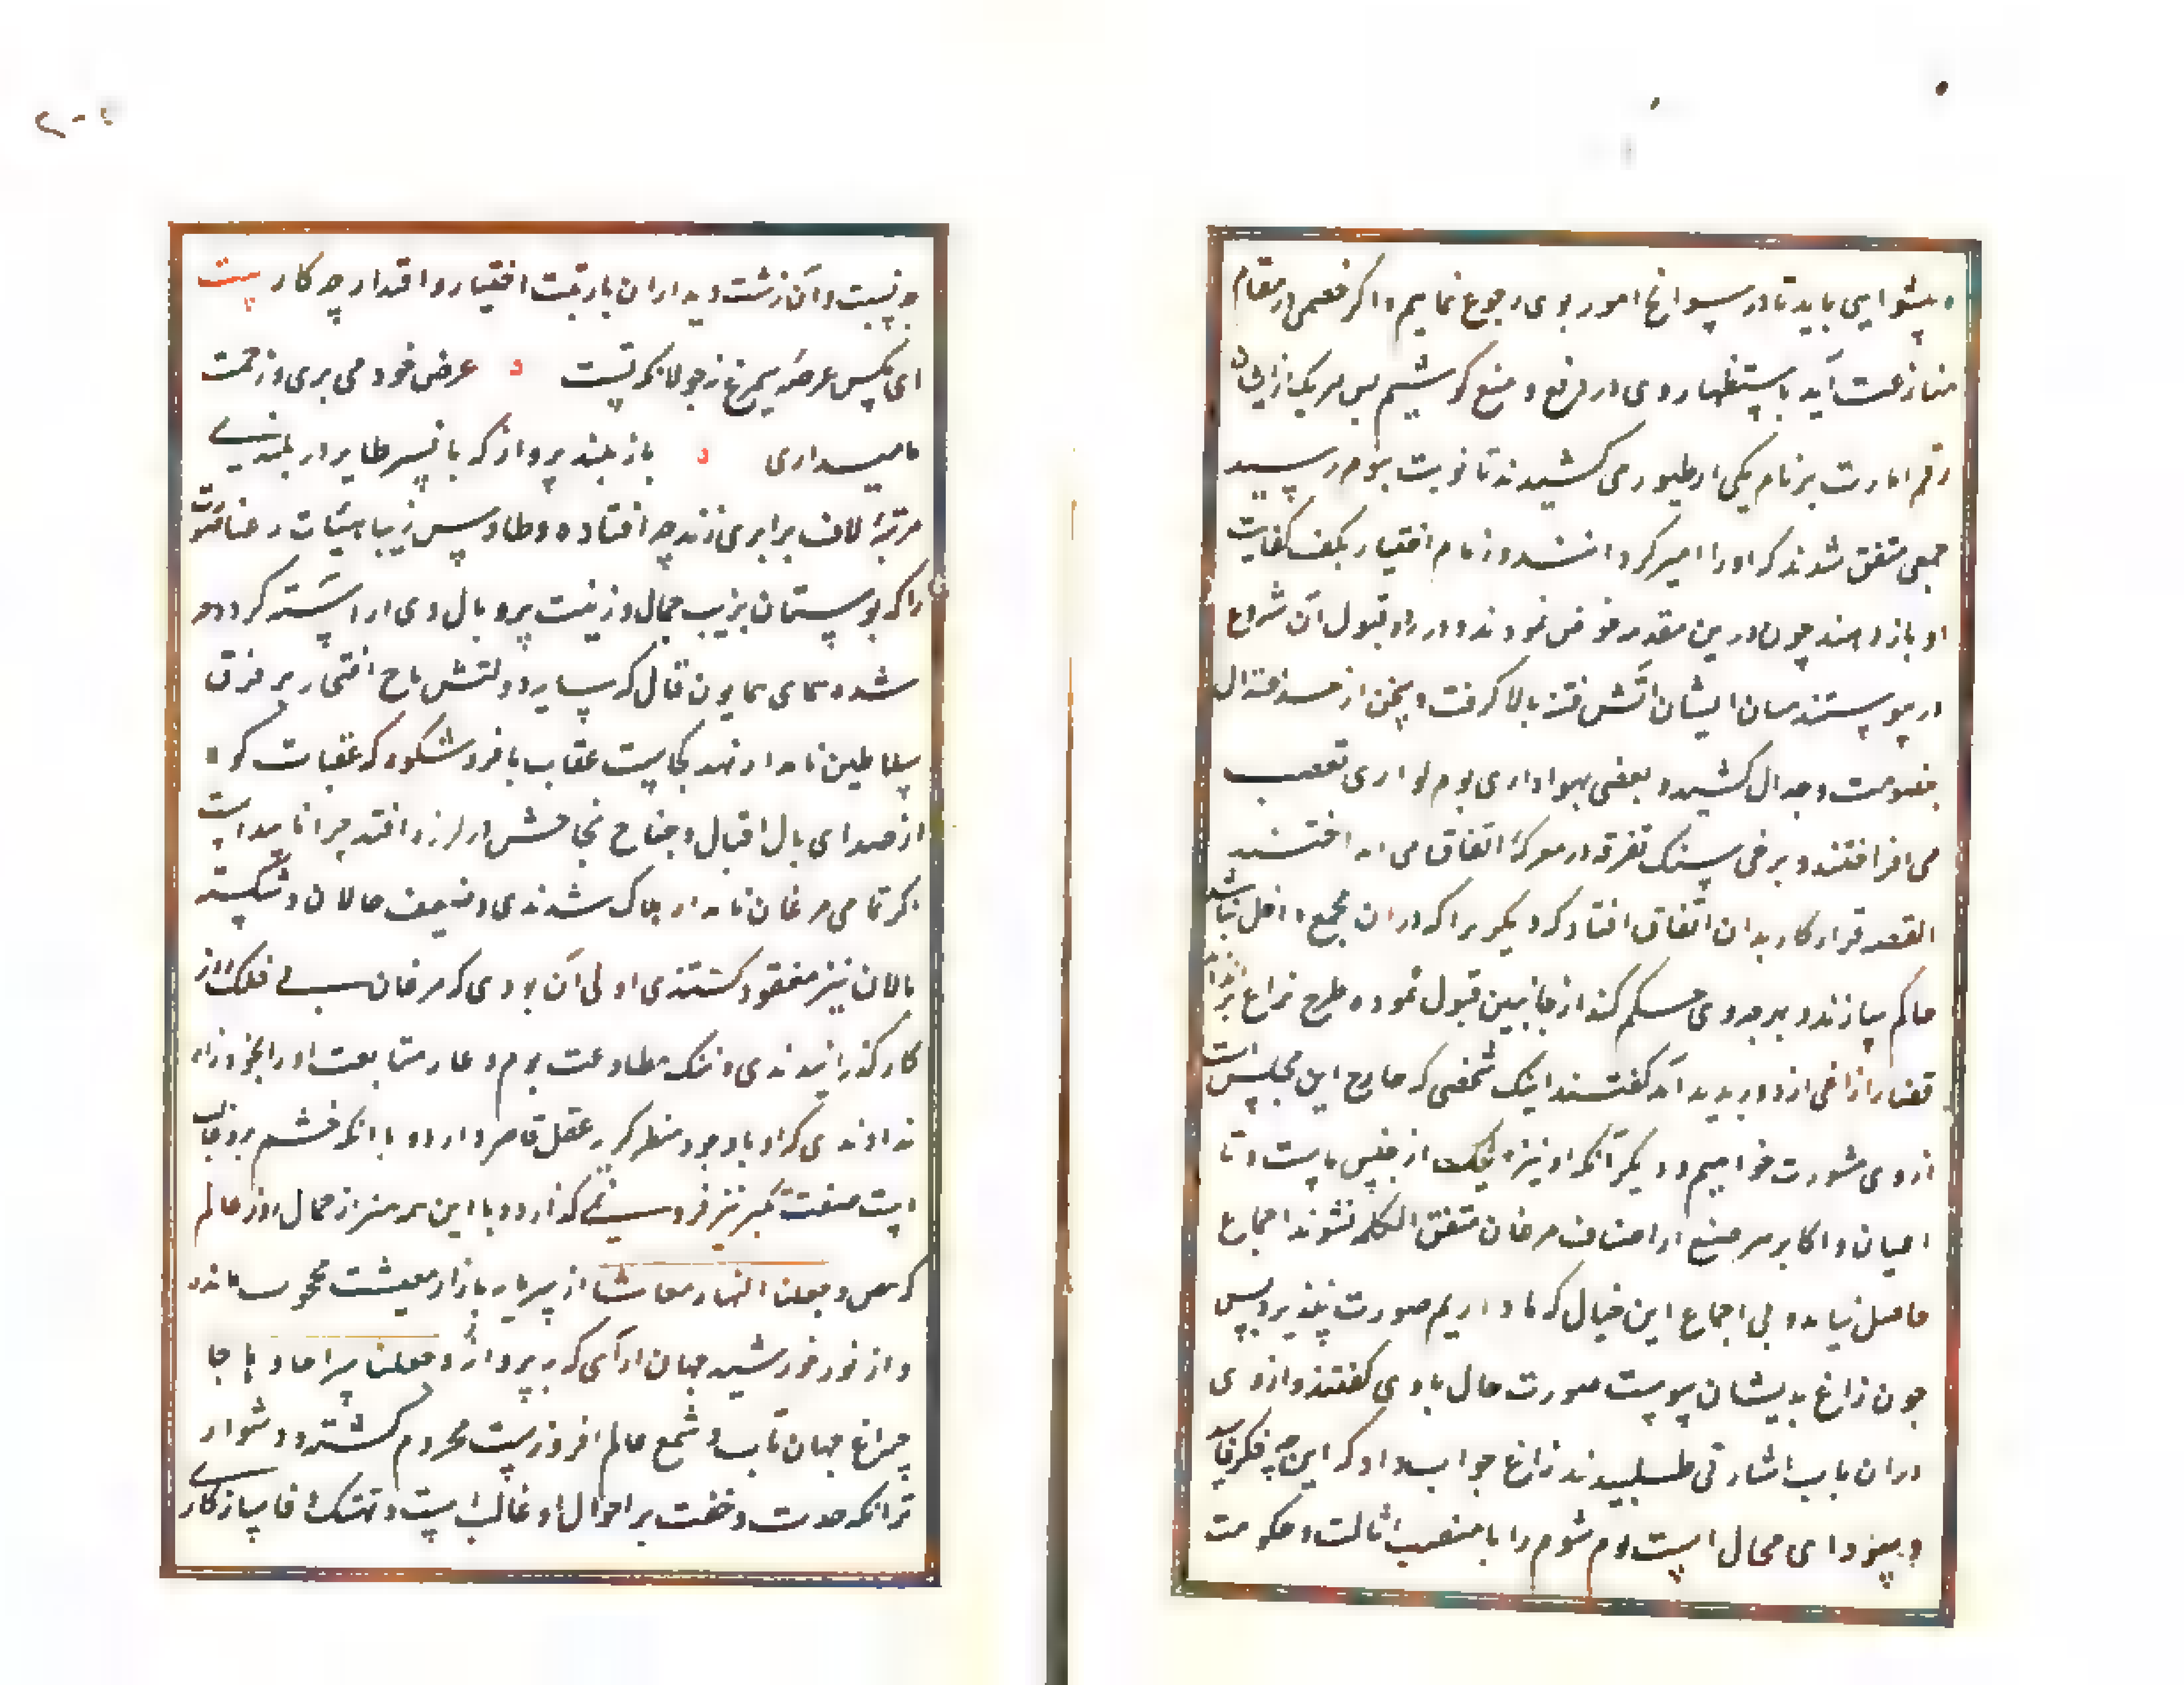 پیشوایی باید تا در سوانح امور بوی رجوع نماییم و اگر خصمی در مقام
منازعت آید باستظهار وی در دفع و منع کوشیم پس هر یک از ایشان
رقم امارت بر نام یکی از طیور می کشیدند تا نوبت ببوم رسید
جمعی متفق شدند که او را امیر گردانند و زمام اختیار بکف کفایت
او باز دهند چون درین مقدمه خوض نمودند و در رد و قبول آن شروع
در پیوستند میان ایشان آتش فتنه بالا گرفت و سخن از حد اعتدال
بخصومت و جدال کشید و بعضی بهواداری بوم لوای تعصب
می افراختند و برخی سنک تفرقه در معرکهٔ اتفاق می انداختند
القصه قرار کار بدان اتفاق افتاد که دیگری را که در ان مجمع داخل نباشد
حاکم سازند و بر چه وی حکم کند از جانبین قبول نموده طرح نزاع
قضا را زاغی از دور پدید آمد گفتند اینک شخصی که خارج این مجلس است
از وی مشورت خواهیم و دیگر آنکه او نیز یک از جنس ماست و تا
اعیان و اکابر هر صنع از اصناف مرغان متفق الکلمه نشوند اجماع
حاصل نیاید و بی اجماع این خیال که ما داریم صورت نپذیرد پس
چون زاغ بدیشان پیوست صورت حال با وی گفتند و از وی
در ان باب اشارتی طلبیدند زاغ جواب داد که این چه فکر فاسد
و سودای محال است بوم شوم را با منصب ایالت و حکومت
چه نسبت و آن زشت دیدار ان را برتبت اختیار و اقتدار چه کار بیت
ای مگس عرصهٔ سیمرغ نه جولانگه تست عرض خود می بری و زحمت
ما میداری باز بلند پرواز که با نسر طایر در بلندی
مرتبهٔ لاف برابری زند چه افتاده و طاوس زیبا هیئات رعنا صورت
را که بوستان بزیب جمال و زینت پر و بال وی آراسته گردد چه
شده همای همایون فال که سایه دولتش تاج افتخار بر فرق
سلاطین نامدار نهد کجاست عقاب با فر و شکوه که عقبات کوه
از صدای بال اقبال و جناح نجاحش در لرزه افتد چرا ناپیداست
اگر تمامی مرغان نامدار هلاک شدندی و ضعیف حالان و شکسته
بالان نیز مفقود گشتندی اولی آن بودی که مرغان بی ملک
کار گذرانیدندی و ننک مطاوعت بوم و عار متابعت او را بخود راه
ندادندی که او با وجود منظر کریه عقل قاصر دارد و با انکه خشم برو غالب
است صفت تکبر نیز فرو نمی گذارد و با این همه هنر از جمال روز عالم
که و جعلنا النهار معاشا از پیرایه بازار معیشت محجوب مانده
و از نور خورشید جهان آرای که پرواز و جعلنا سراجا وهاجا
چراغ جهان تاب و شمع عالم افروز است محروم گشته و دشوار
تر انکه حدت و خفت بر احوال او غالب است و تهتک و ناسازکاری